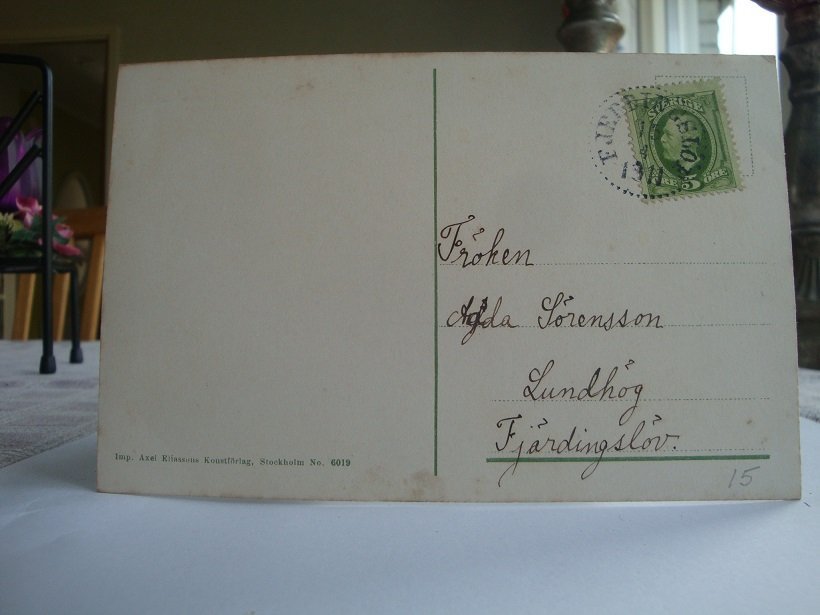 SVERIGE
1911
5 ÖRE
Fröken
Agda Sörensson
Lundhög
Fjärdingslöv.
Imp. Axel Eliassons Konstförlag, Stockholm No. 6019
15